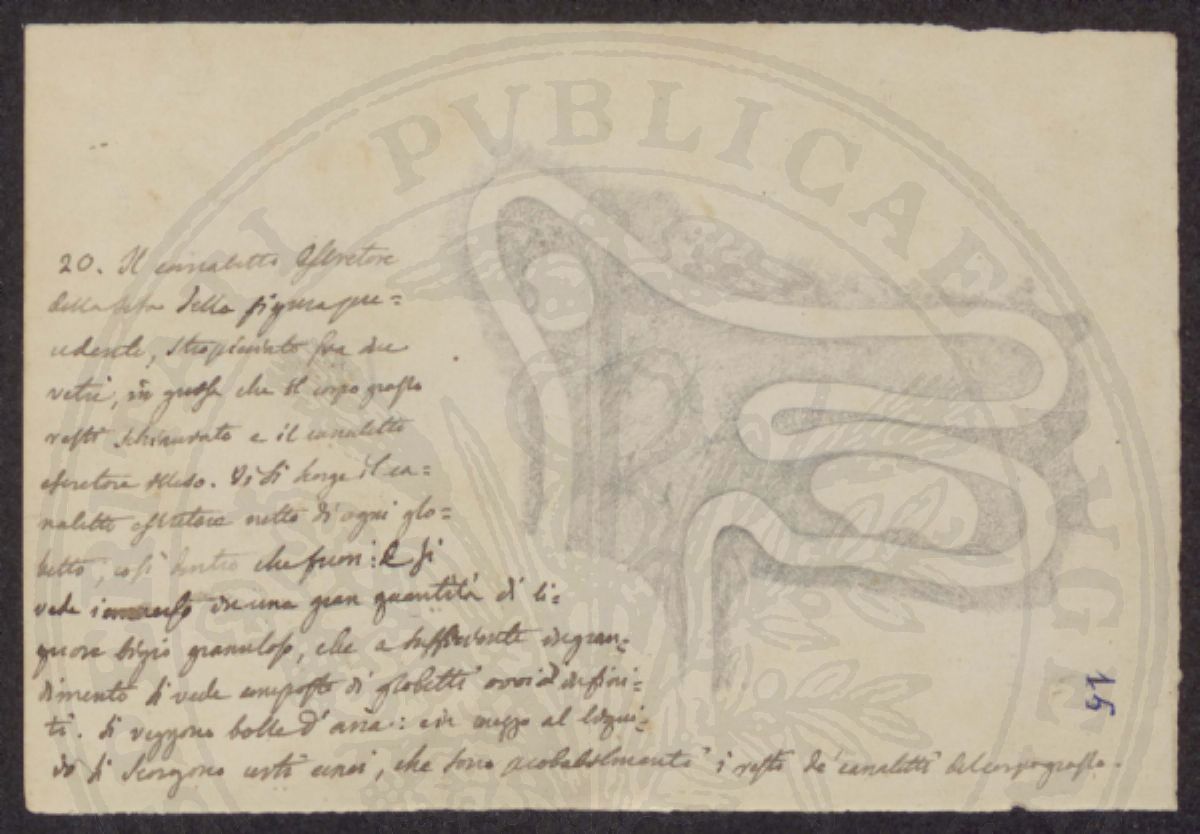 20. Il cannaletto escretore
della seta della figura pre=
cedente, stropicciato fra due
vetri, in guisa che il corpo grasso
resti schiacciato e il canaletto
escretore illeso. Vi si scorge il ca=
naletto escretore netto di ogni glo=
betto, così dentro che fuori: e si
vede immerso in una gran quantità di li=
quore bigio granuloso, che a sufficiente ingran=
dimento si vede composto di globetti ovoidi infini=
ti. Si veggono bolle d'aria: e in mezzo al liqui=
do si scorgono certi, che sono probabilmente i resti de' canaletti del corpo grasso.
15
PUBLICAE